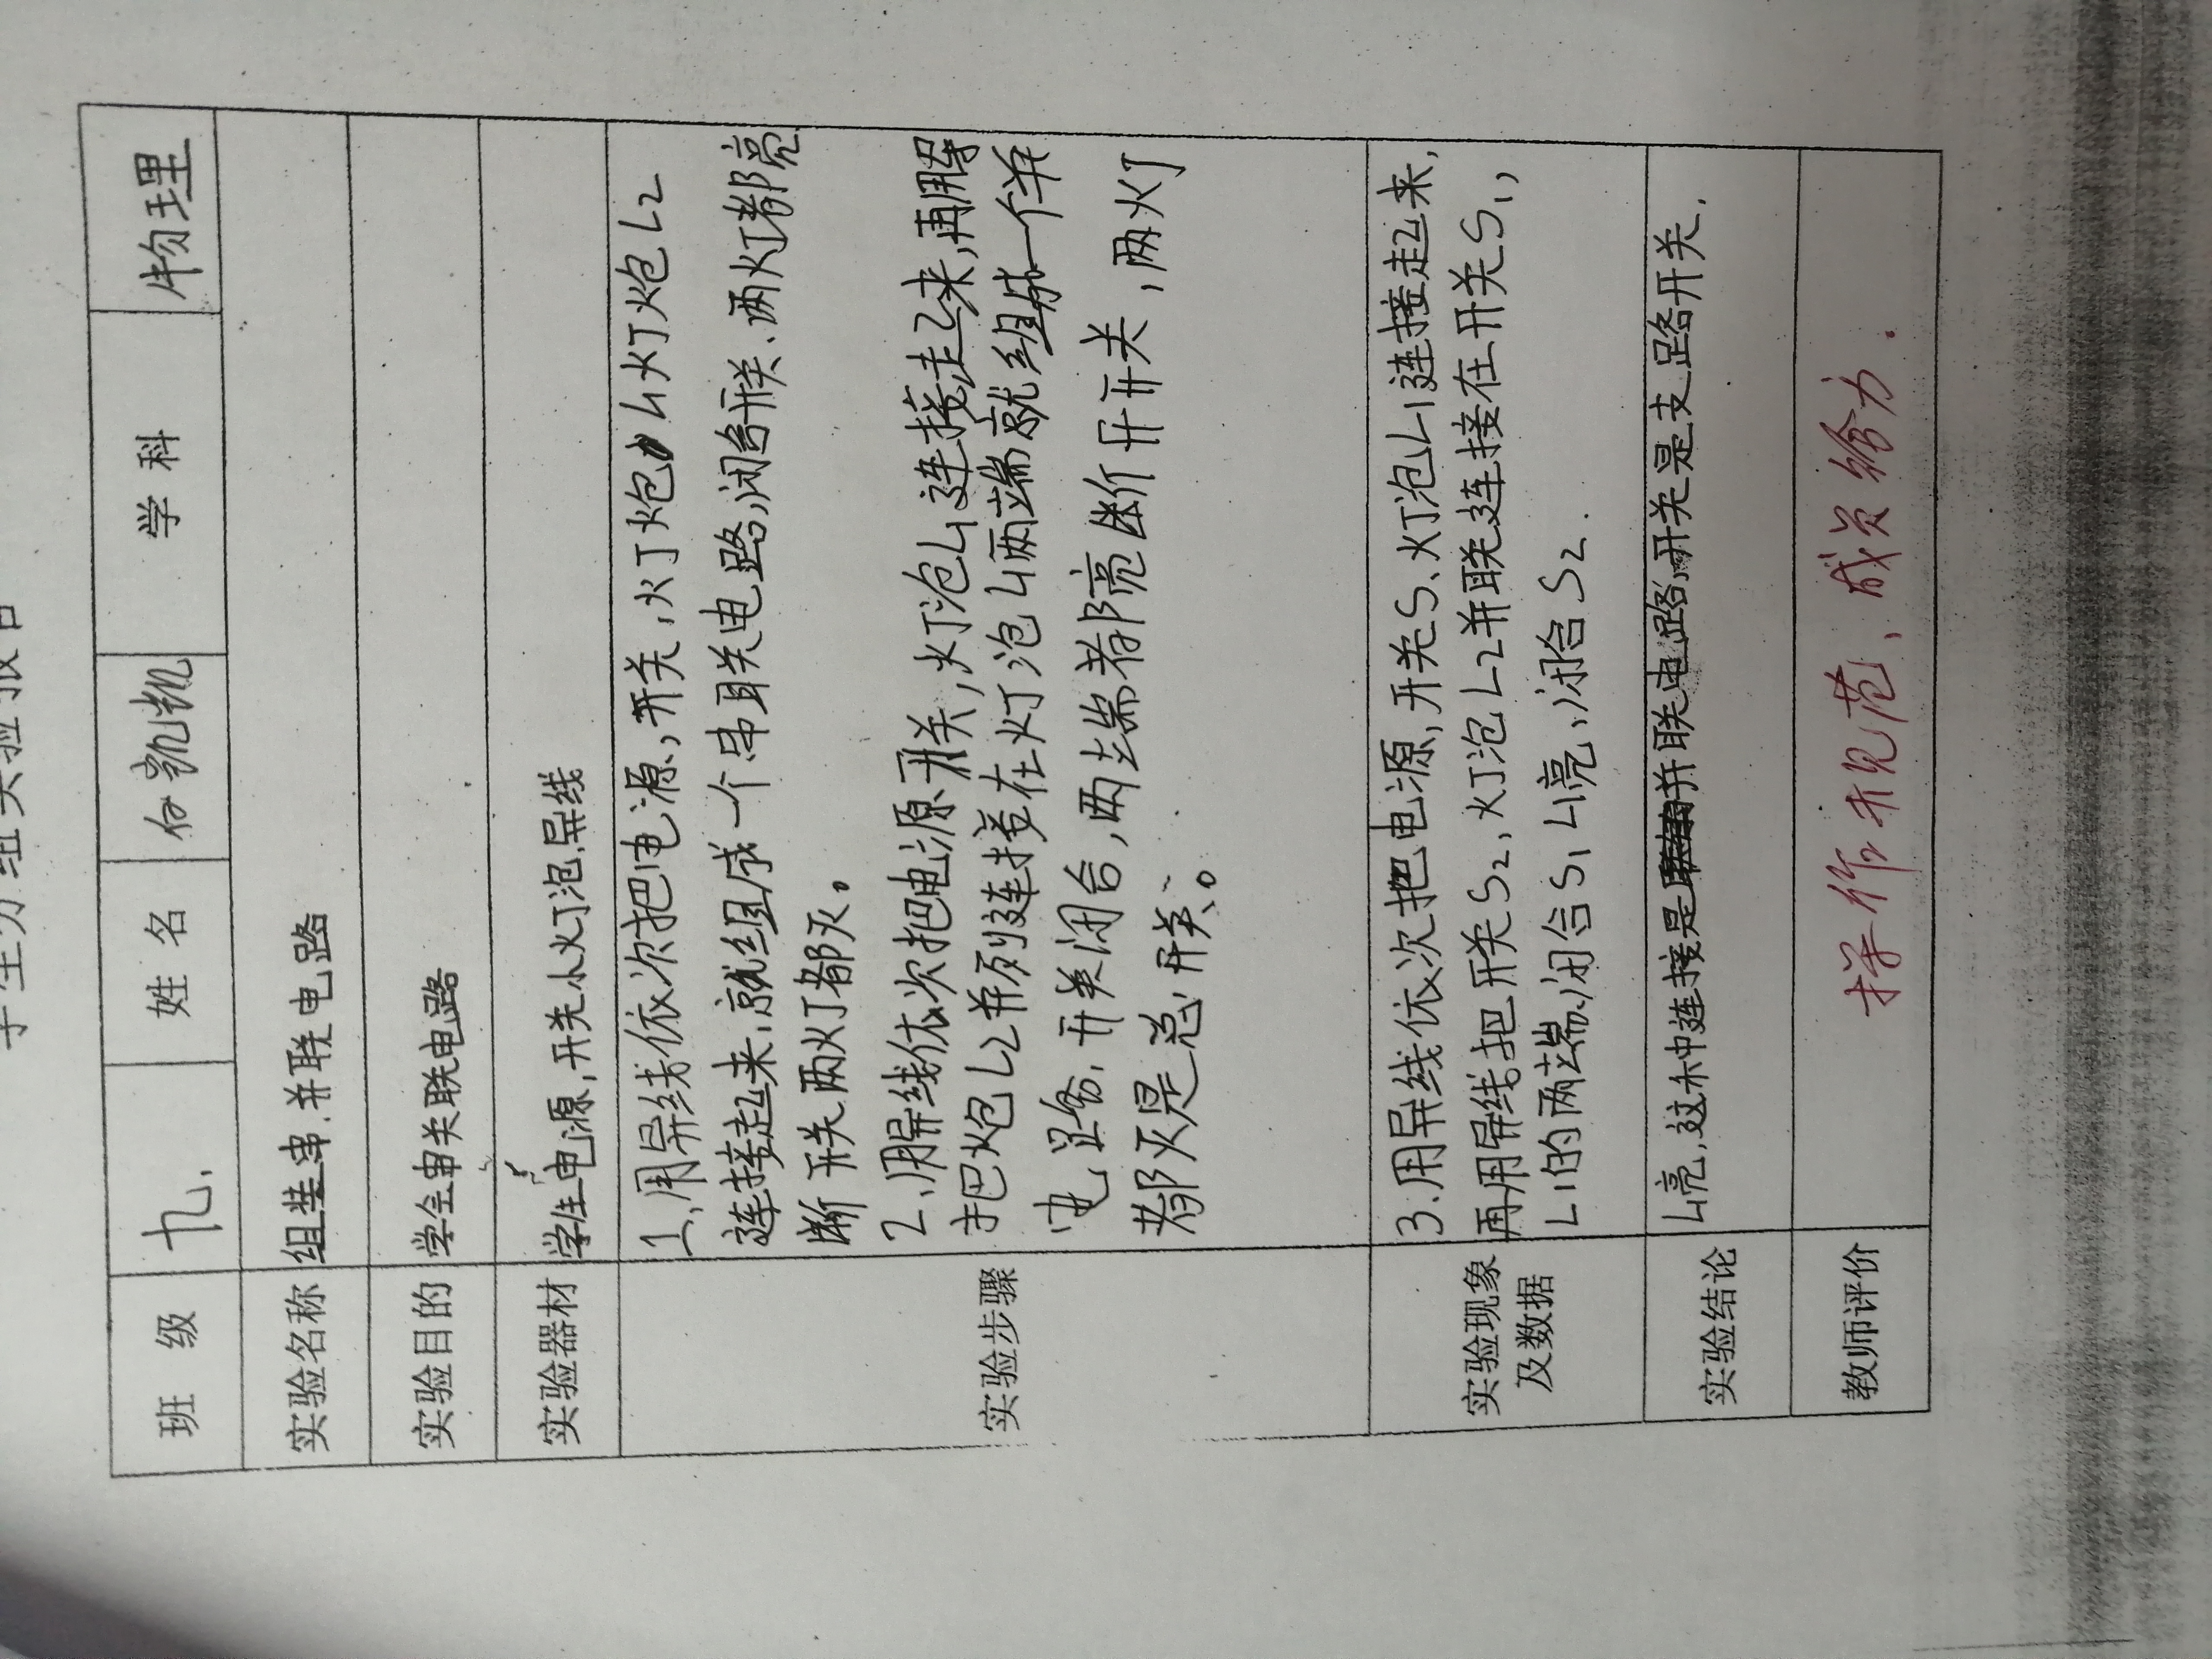 学生分组实验报告
班 级 九. 姓 名 白凯凯 学 科 物理
实验名称 组装串.并联电路
实验目的 学会串关联电路
实验器材 学生电源,开关小火丁泡.导线
实验步骤
1、用导线依次把电源,开关,火丁炮L1火丁炮L2
连接起来.就组成一个串联电路,闭合开关.两火丁都亮
断开关两火丁都灭。
2、用导线依次把电源.开关,火丁泡L1连接走来,再用导
把炮L2并列连接在火丁泡L1两端就组成一个并
电路.开关闭合,两端都亮断开开关,两火丁
都灭是总开关。
实验现象及数据
3.用导线依次把电源,开关S、火丁泡L1连接起来,
再用导线把开关S2,火丁泡L2并联连接在开关S1,
L1的两端.闭合S1 L1亮,闭合S2.
实验结论
L1亮.这种连接是并联电路,开关是支路开关.
教师评价 操作规范、成员给力.